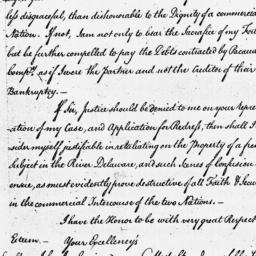 less disgraceful, than dishonorable to the Dignity of a commercial
Nation. If not, I am not only to bear the Sacrifice of my
but be further compelled to pay the Debts contracted by
Compy., as if I were the Partner and not the Creditor of their
Bankruptcy. —
If Sir, Justice should be denied to me on your
ation of my Case, and Application for Redress, then shall I
sider myself justifiable in retaliating on the Property of a
Subject in the River Delaware, and such Scenes of Confusion
ensue, as must evidently prove destructive of all Faith &
in the commercial Intercourse of the two Nations. —
I have the Honor to be with very great Respect
Esteem. — Your Excellency's